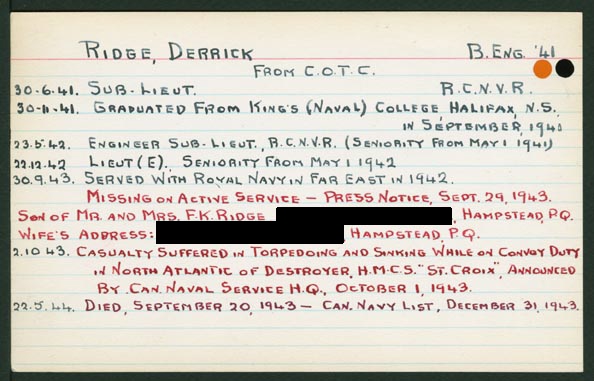 RIDGE, DERRICK B. ENG. '41
FROM C.O.T.C.
30-6-41. SUB-LIEUT. R.C.N.V.R.
30-11-41. GRADUATED FROM KING'S (NAVAL) COLLEGE HALIFAX, N.S.
IN SEPTEMBER, 1941
23.5.42. ENGINEER SUB-LIEUT., R.C.N.V.R. (SENIORITY FROM MAY 1 1941)
22.12.42 LIEUT (E), SENIORITY FROM MAY 1 1942
30.9.43. SERVED WITH ROYAL NAVY IN FAR EAST IN 1942.
MISSING ON ACTIVE SERVICE – PRESS NOTICE, SEPT. 29, 1943.
SON OF MR. AND MRS. F.K. RIDGE , HAMPSTEAD, P.Q.
WIFE'S ADDRESS: HAMPSTEAD, P.Q.
2.10 43. CASUALTY SUFFERED IN TORPEDOING AND SINKING WHILE ON CONVOY DUTY
IN NORTH ATLANTIC OF DESTROYER, H.M.C.S. "ST. CROIX", ANNOUNCED
BY CAN. NAVAL SERVICE H.Q., OCTOBER 1, 1943.
22.5.44. DIED, SEPTEMBER 20, 1943 – CAN. NAVY LIST, DECEMBER 31, 1943.